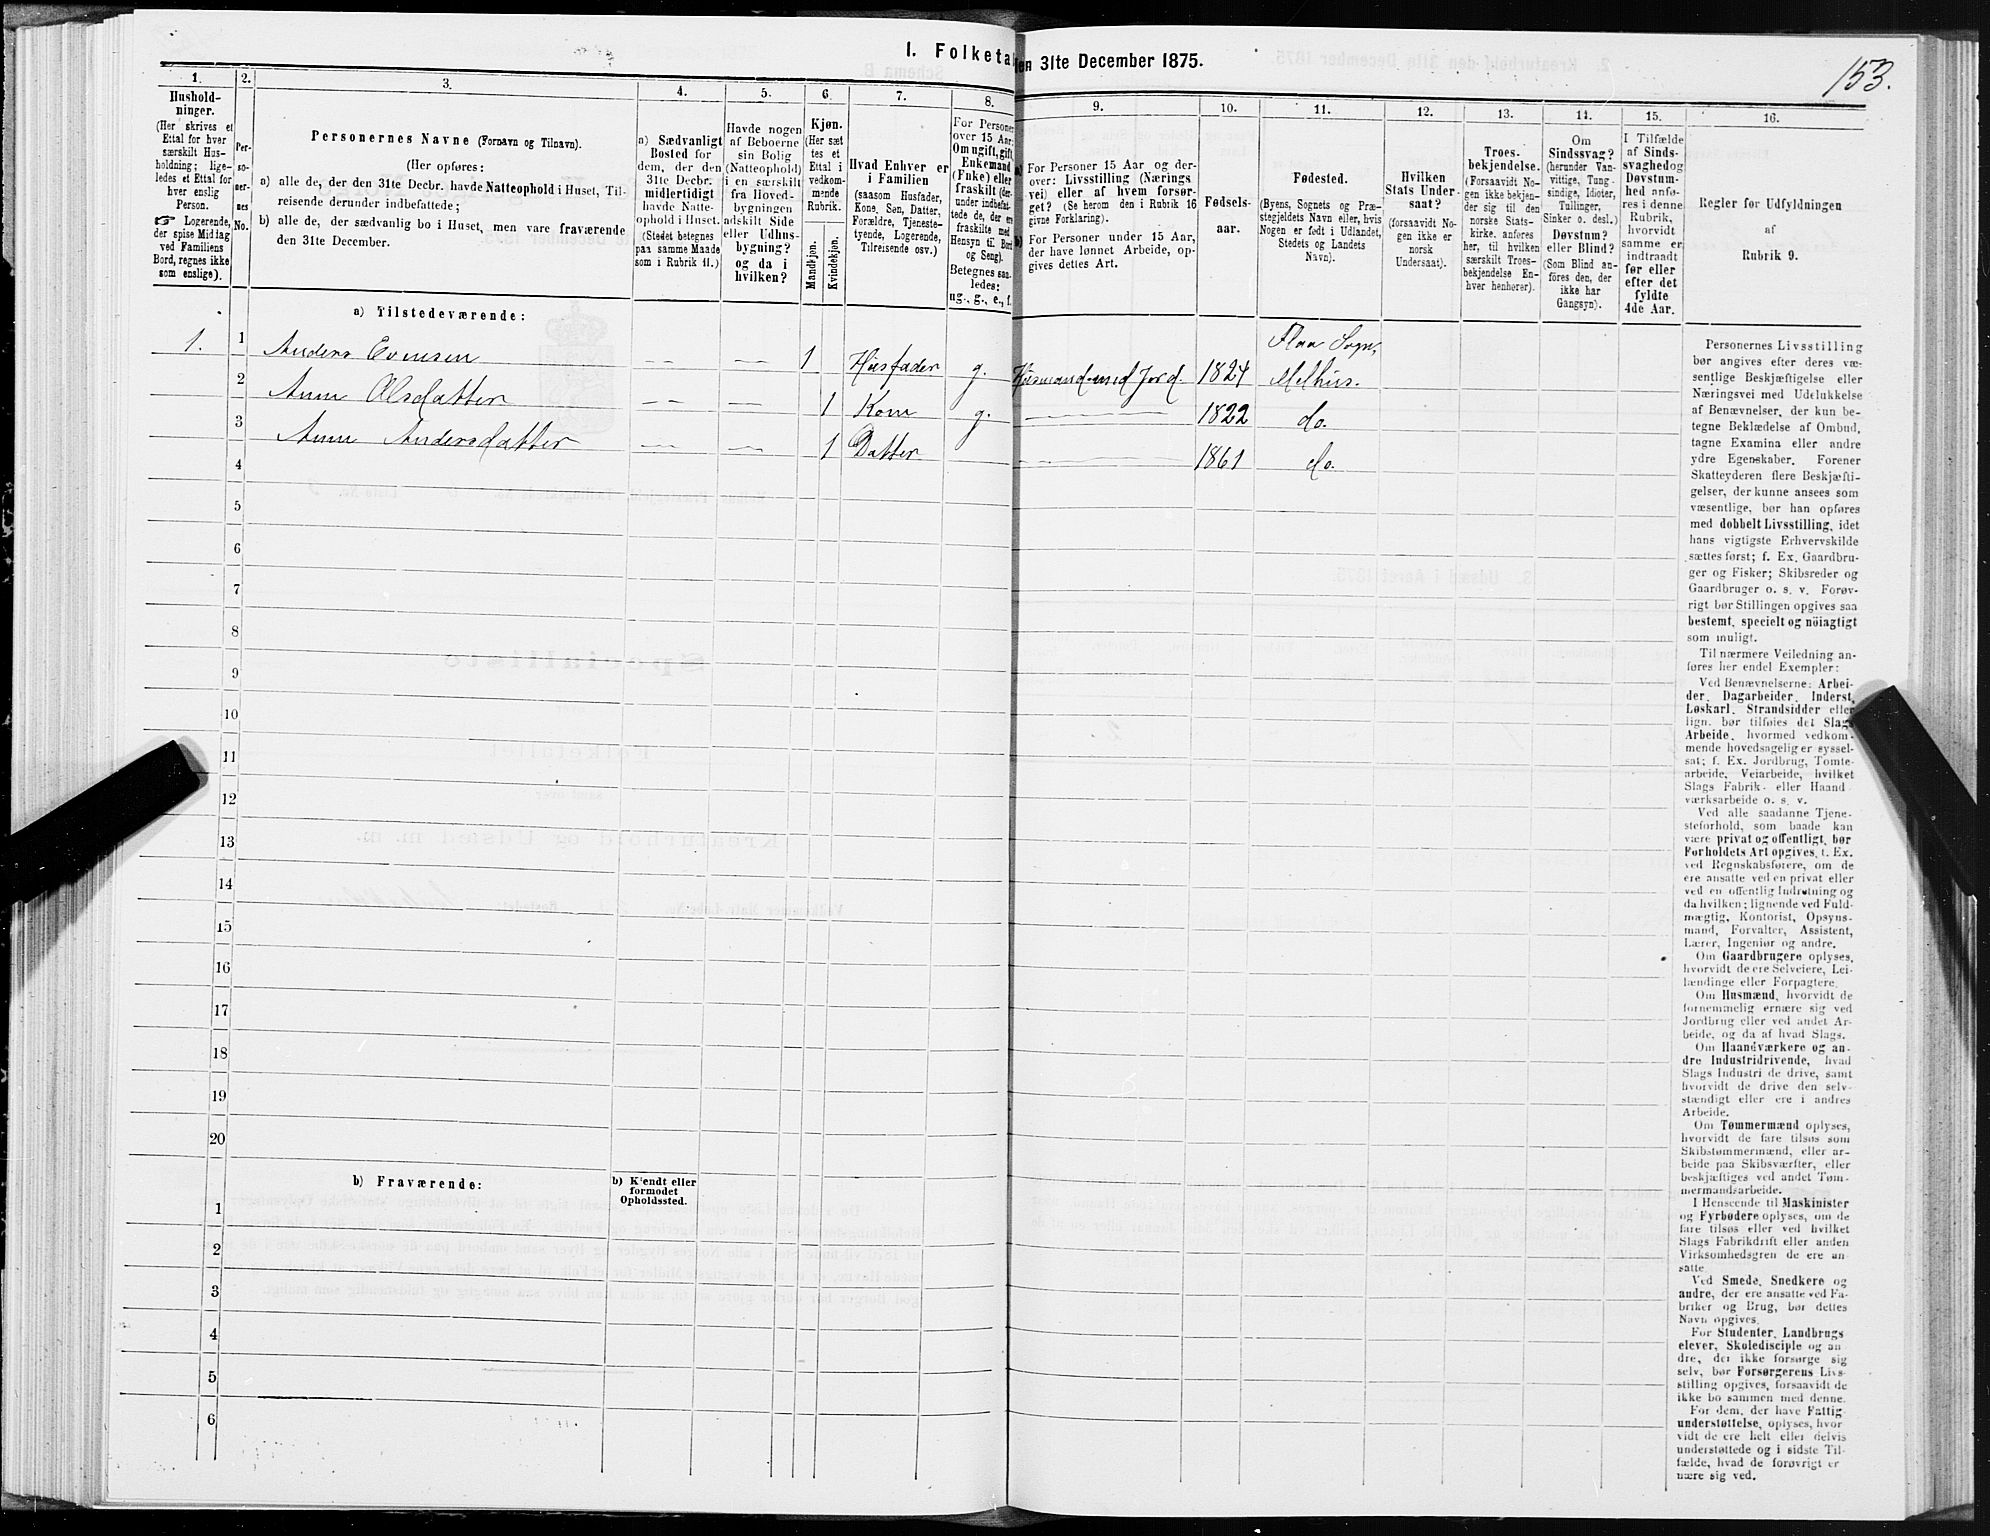 I. Folketa
en 31te December 1875.
153.
1.
2.
3.
4.
5.
6.
7.
8.
9.
10.
11.
12.
13.
14.
15.
16.
Hushold-
ninger.
(Her skrives et
Ettal for hver
særskilt Hus-
holdning; lige-
ledes et Ettal for
hver enslig
Person.
☞ Logerende,
der spise Middag
ved Familiens
Bord, regnes ikke
som enslige).
Per-
so-
ner-
nes
No.
Personernes Navne (Fornavn og Tilnavn).
(Her opføres:
a) alle de, der den 31te Decbr. havde Natteophold i Huset, Til-
reisende derunder indbefattede;
b) alle de, der sædvanlig bo i Huset, men vare fraværende
den 31te December.
a) Sædvanligt
Bosted for
dem, der den
31te Decbr.
midlertidigt
havde Natte-
ophold i Huset.
(Stedet betegnes
paa samme Maade
som i Rubrik 11.)
Havde nogen
af Beboerne
sin Bolig
(Natteophold)
i en særskilt
fra Hoved-
bygningen
adskilt Side
eller Udhus-
bygning?
og da i
hvilken?
Kjøn.
(Her sæt
tes et
Ettal i
vedkom-
mende
Rubrik.
Mandkjøn.
Kvindekjøn.
Hvad Enhver er
i Familien
(saasom Husfader,
Kone, Søn, Datter,
Forældre, Tjeneste-
tyende, Logerende,
Tilreisende osv.)
For Personer
over 15 Aar:
Om ugift, gift,
Enkemand
(Enke) eller
fraskilt (der-
under indbefat-
tede de, der er
fraskilte med
Hensyn til Bord
og Seng).
Betegnes saa-
ledes:
ug., g., e., f.
For Personer 15 Aar og der-
over: Livsstilling (Nærings
vei) eller af hvem forsør-
get? (Se herom den i Rubrik 16
givne Forklaring).
For Personer under 15 Aar,
der have lønnet Arbeide, op-
gives dettes Art.
Fødsels-
aar.
Fødested.
(Byens, Sognets og Præ-
stegjeldets Navn eller, hvis
Nogen er født i Udlandet,
Stedets og Landets
Navn).
Hvilken
Stats Under-
saat?
(forsaavidt No-
gen ikke er
norsk
Undersaat).
Troes-
bekjendelse.
(Forsaavidt No-
gen ikke bekjen-
der sig til den
norske Stats-
kirke, anføres
her, til hvilken
særskilt Troes-
bekjendelse En-
hver henhører).
Om
Sindssvag?
(herunder Van-
vittige, Tung-
sindige, Idioter,
Tullinger,
Sinker o. desl.)
Døvstum?
eller Blind?
(Som Blind an-
føres den, der
ikke har
Gangsyn).
I Tilfælde
af Sinds-
svaghed og
Døvstum-
hed anfø-
res i denne
Rubrik,
hvorvidt
samme er
indtraadt
før eller
efter det
fyldte
4de Aar.
Regler for Udfyldningen
af
Rubrik 9.
a) Tilstedeværende:
1. 1 Anders Evensen — — — — 1 Husfader g. Husmand med Jord. 1824 Flaa Sogn, Melhus.
2 Anne Olsdatter — — — — 1 Kone g. — 1822 do.
3 Anne Andersdatter — — — — 1 Datter — 1861 do.
4
5
6
7
8
9
10
11
12
13
14
15
16
17
18
19
20
b) Fraværende:
b) Kjendt eller
formodet
Opholdssted.
1
2
3
4
5
6
Personernes Livsstilling
bør angives efter deres væ-
sentlige Beskjæftigelse eller
Næringsvei med Udelukkelse
af Benævnelser, der kun be-
tegne Beklædelse af Ombud,
tagne Examina eller andre
ydre Egenskaber. Forener
Skatteyderen flere Beskjæfti-
gelser, der kunne ansees som
væsentlige, bør han opføres
med dobbelt Livsstilling, idet
hans vigtigste Erhvervskilde
sættes først; f. Ex. Gaardbru-
ger og Fisker; Skibsreder og
Gaardbruger o. s. v. Forøv-
rigt bør Stillingen opgives saa
bestemt, specielt og nöiagtigt
som muligt.
Til nærmere Veiledning an-
føres her endel Exempler:
Ved Benævnelserne: Arbei-
der, Dagarbeider, Inderst,
Løskarl, Strandsidder eller
lign. bør tilføies det Slags
Arbeide, hvormed vedkom-
mende hovedsagelig er syssel-
sat; f. Ex. Jordbrug, Tomte-
arbeide, Veiarbeide, hvilket
Slags Fabrik- eller Haand
værksarbeide o. s. v.
Ved alle saadanne Tjene-
steforhold, som baade kan
være privat og offentligt, bør
Forholdets Art opgives, f. Ex.
ved Regnskabsførere, om de
ere ansatte ved en privat eller
ved en offentlig Indretning og
da hvilken; lignende ved Fuld-
mægtig, Kontorist, Opsyns-
mand, Forvalter, Assistent,
Lærer, Ingeniør og andre.
Om Gaardbrugere oplyses,
hvorvidt de ere Selveiere, Lei-
lændinge eller Forpagtere.
Om Husmænd, hvorvidt de
fornemmelig ernære sig ved
Jordbrug eller ved andet Ar-
beide, og da af hvad Slags.
Om Haandværkere og an-
dre Industridrivende, hvad
Slags Industri de drive, samt
hvorvidt de drive den selv-
stændigt eller ere i andres
Arbeide.
Om Tømmermænd oplyses,
hvorvidt de fare tilsøs som
Skibstømmermænd, eller ar-
beide paa Skibsværfter, eller
beskjæftiges ved andet Tøm-
mermandsarbeide.
I Henseende til Maskinister
og Fyrbødere oplyses, om de
fare tilsøs eller ved hvilket
Slags Fabrikdrift eller anden
Virksomhedsgren de ere an-
satte.
Ved Smede, Snedkere og
andre, der ere ansatte ved Fa-
briker og Brug, bør dettes
Navn opgives.
For Studenter, Landbrugs
elever, Skoledisciple og an
dre, der ikke forsørge sig
selv, bør Forsørgerens Livs-
stilling opgives, forsaavidt de
ikke bo sammen med denne.
For dem, der have Fattig
understøttelse, oplyses, hvor
vidt de ere helt eller delvis
understøttede og i sidste Til-
fælde, hvad de forøvrigt er
nære sig ved.